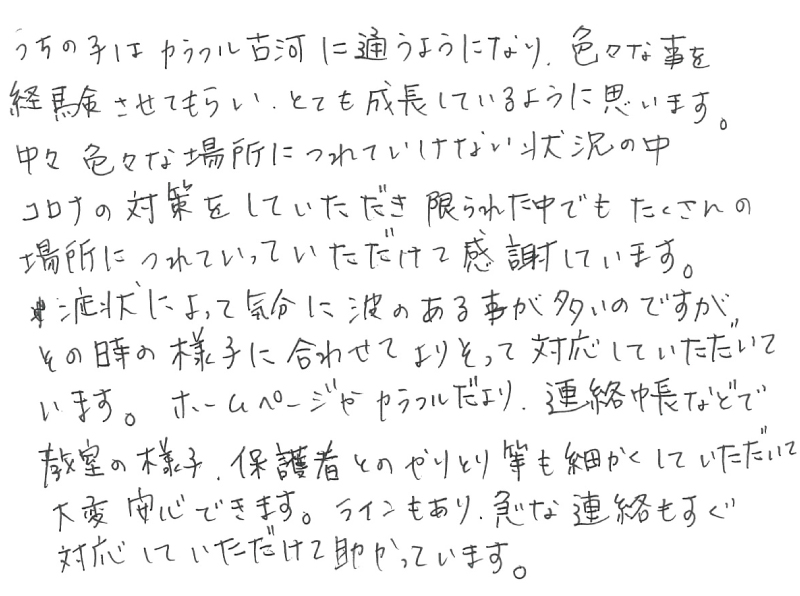 うちの子はカラフル古河に通うようになり、色々な事を
経験させてもらい、とても成長しているように思います。
中々色々な場所につれていけない状況の中
コロナの対策をしていただき限られた中でもたくさんの
場所につれていっていただけて感謝しています。
症状によって気分に波のある事が多いのですが
その時の様子に合わせてよりそって対応していただいて
います。ホームページやカラフルだより、連絡帳などで
教室の様子、保護者とのやりとり等も細かくしていただいて
大変安心できます。ラインもあり、急な連絡もすぐ
対応していただけて助かっています。